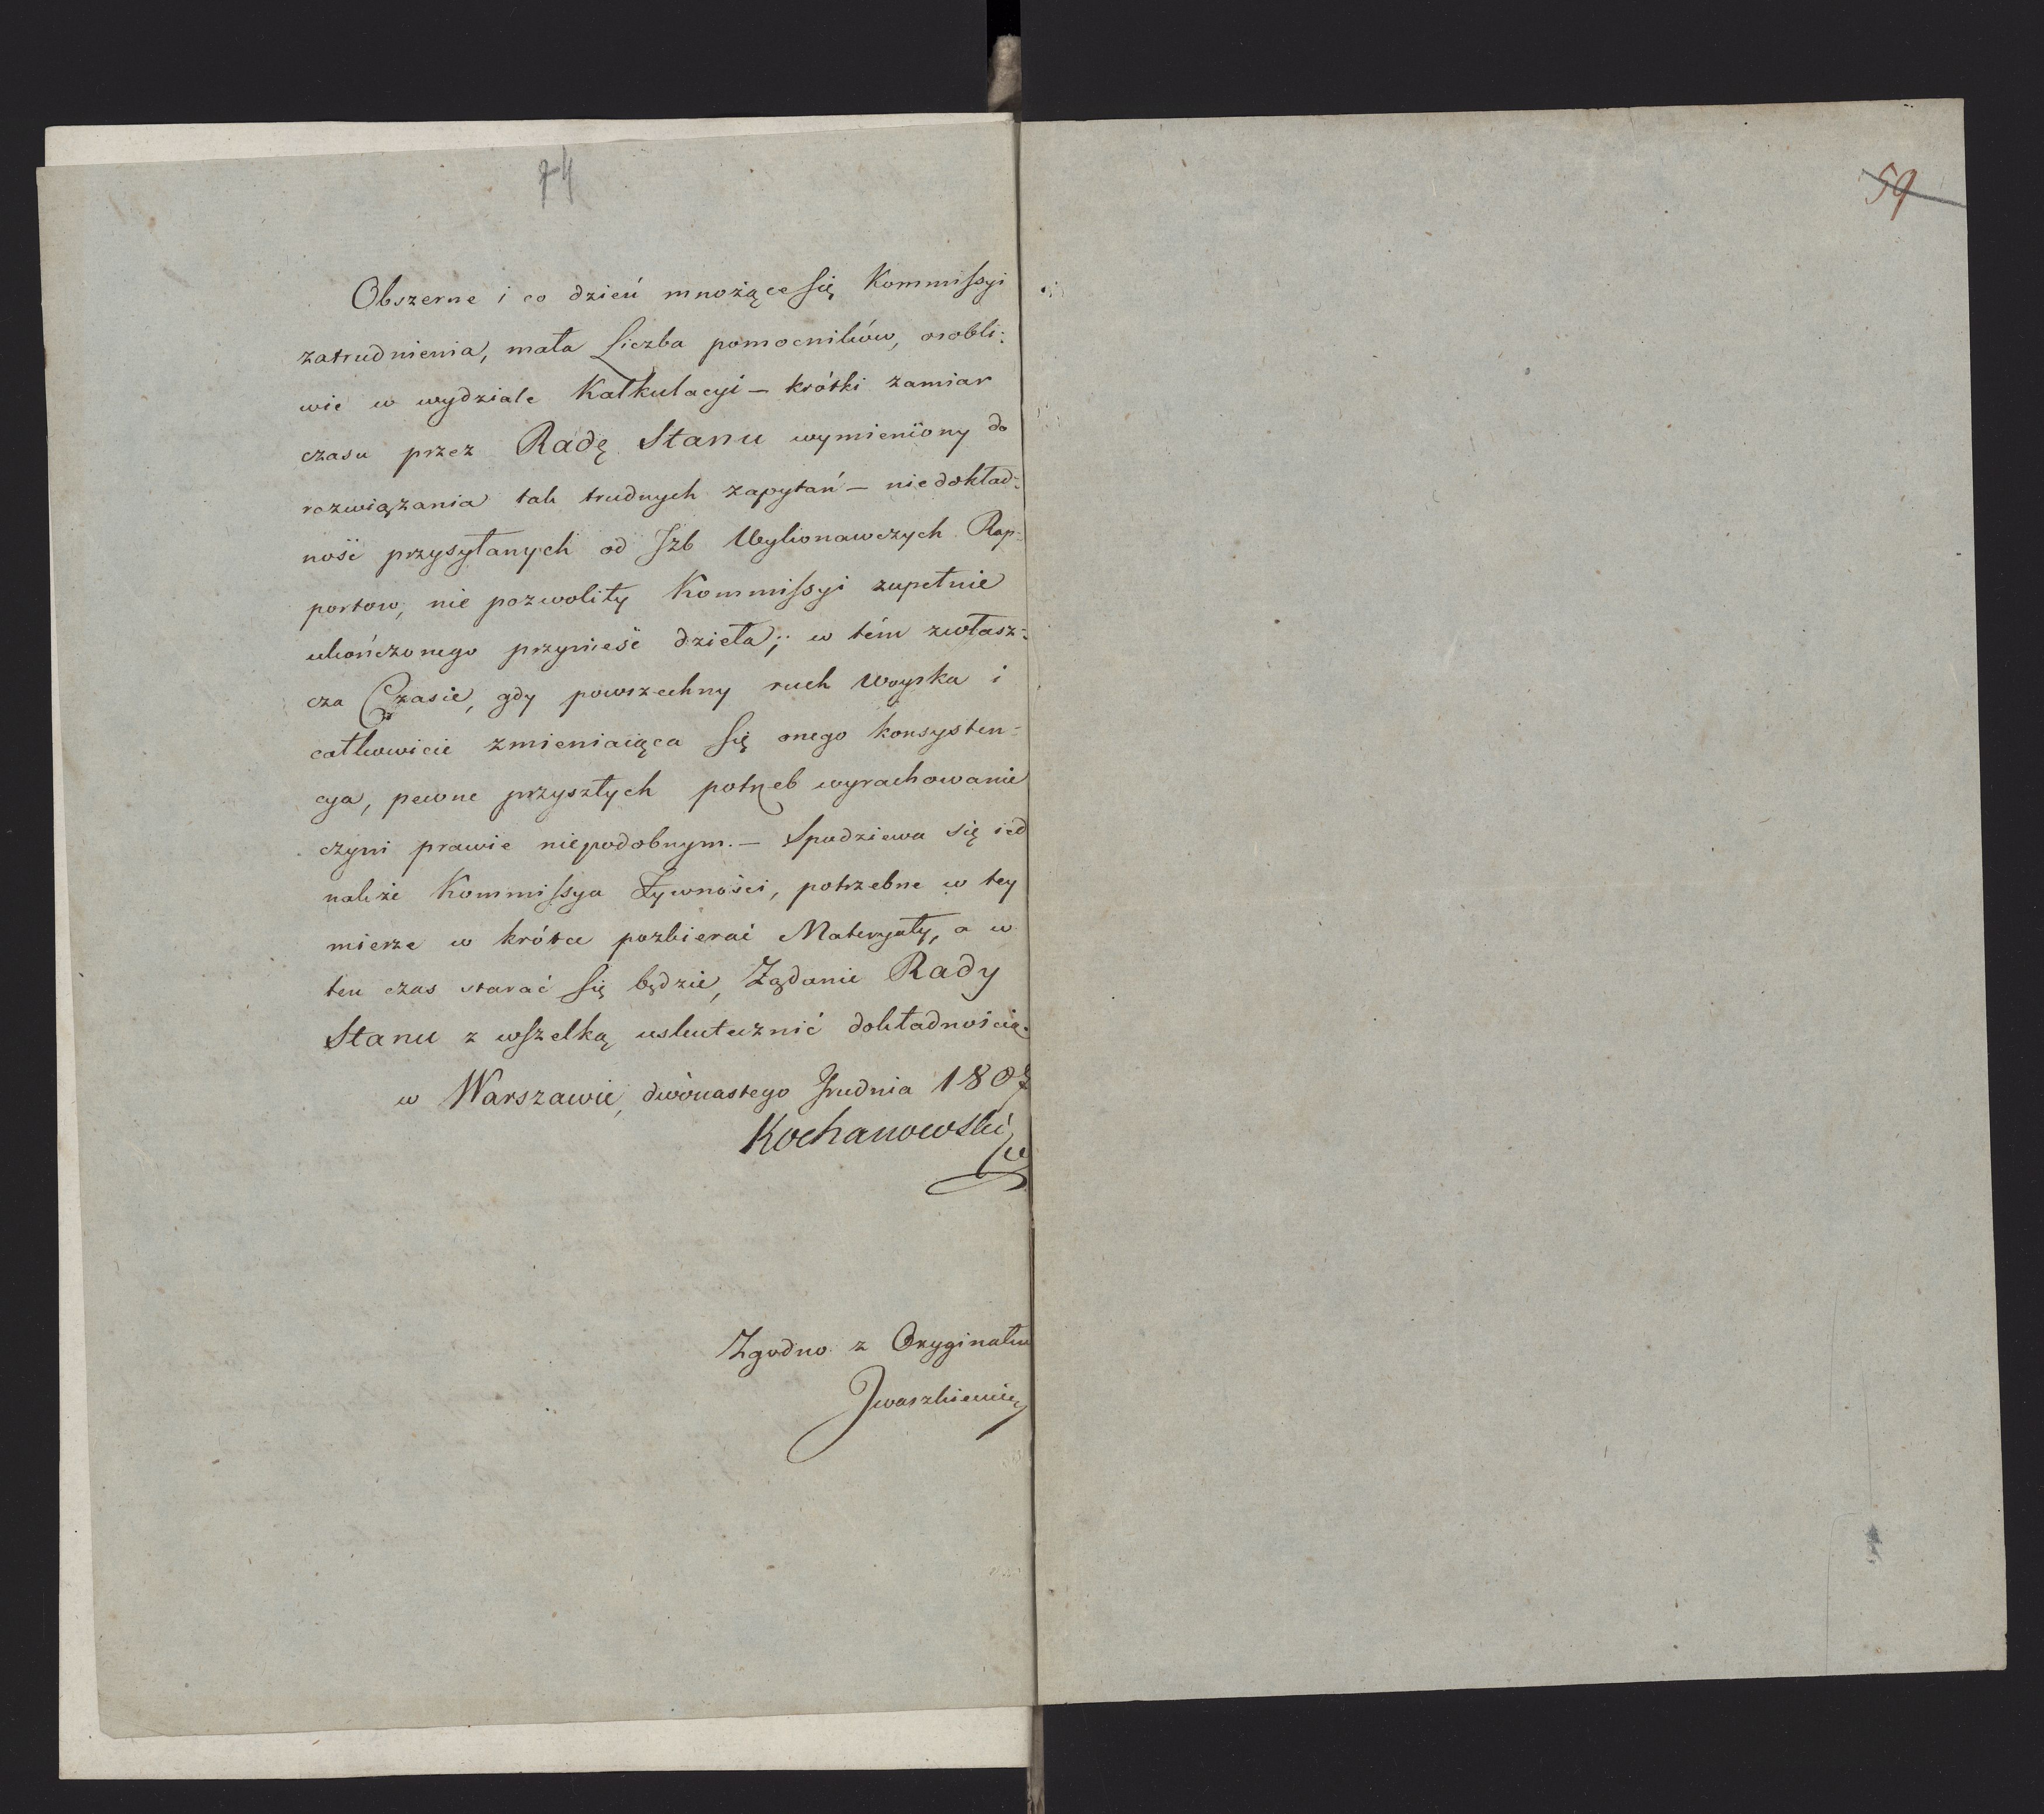 74
59
Obszerne i co dzień mnożące się Kommissyi
zatrudnienia, mała Liczba pomocników, osobli-
wie w wydziale Kalkulacyi – krótki zamiar
czasu przez Radę Stanu wymieniony do
rozwiązania tak trudnych zapytań – niedokład-
ność przysyłanych od Izb Wykonawczych Rap-
portow, nie pozwoliły Kommissyi zupełnie
ukończonego przynieść dzieła; w tém zwłasz-
cza Czasie, gdy powszechny ruch Woyska i
całkowicie zmieniaiąca się onego konsysten-
cya, pewne przyszłych potrzeb wyrachowanie
czyni prawie niepodobnym. – Spodziewa się ied
nakże Kommissya Żywności, potrzebne w tey
mierze w krótce pozbierać Materyały, a w
ten czas starać się będzie, Żądanie Rady
Stanu z wszelką uskutecznić dokładnością.
w Warszawie, dwónastego Grudnia 1807
Kochanowski
Zgodno z Oryginałem
Iwaszkiewicz